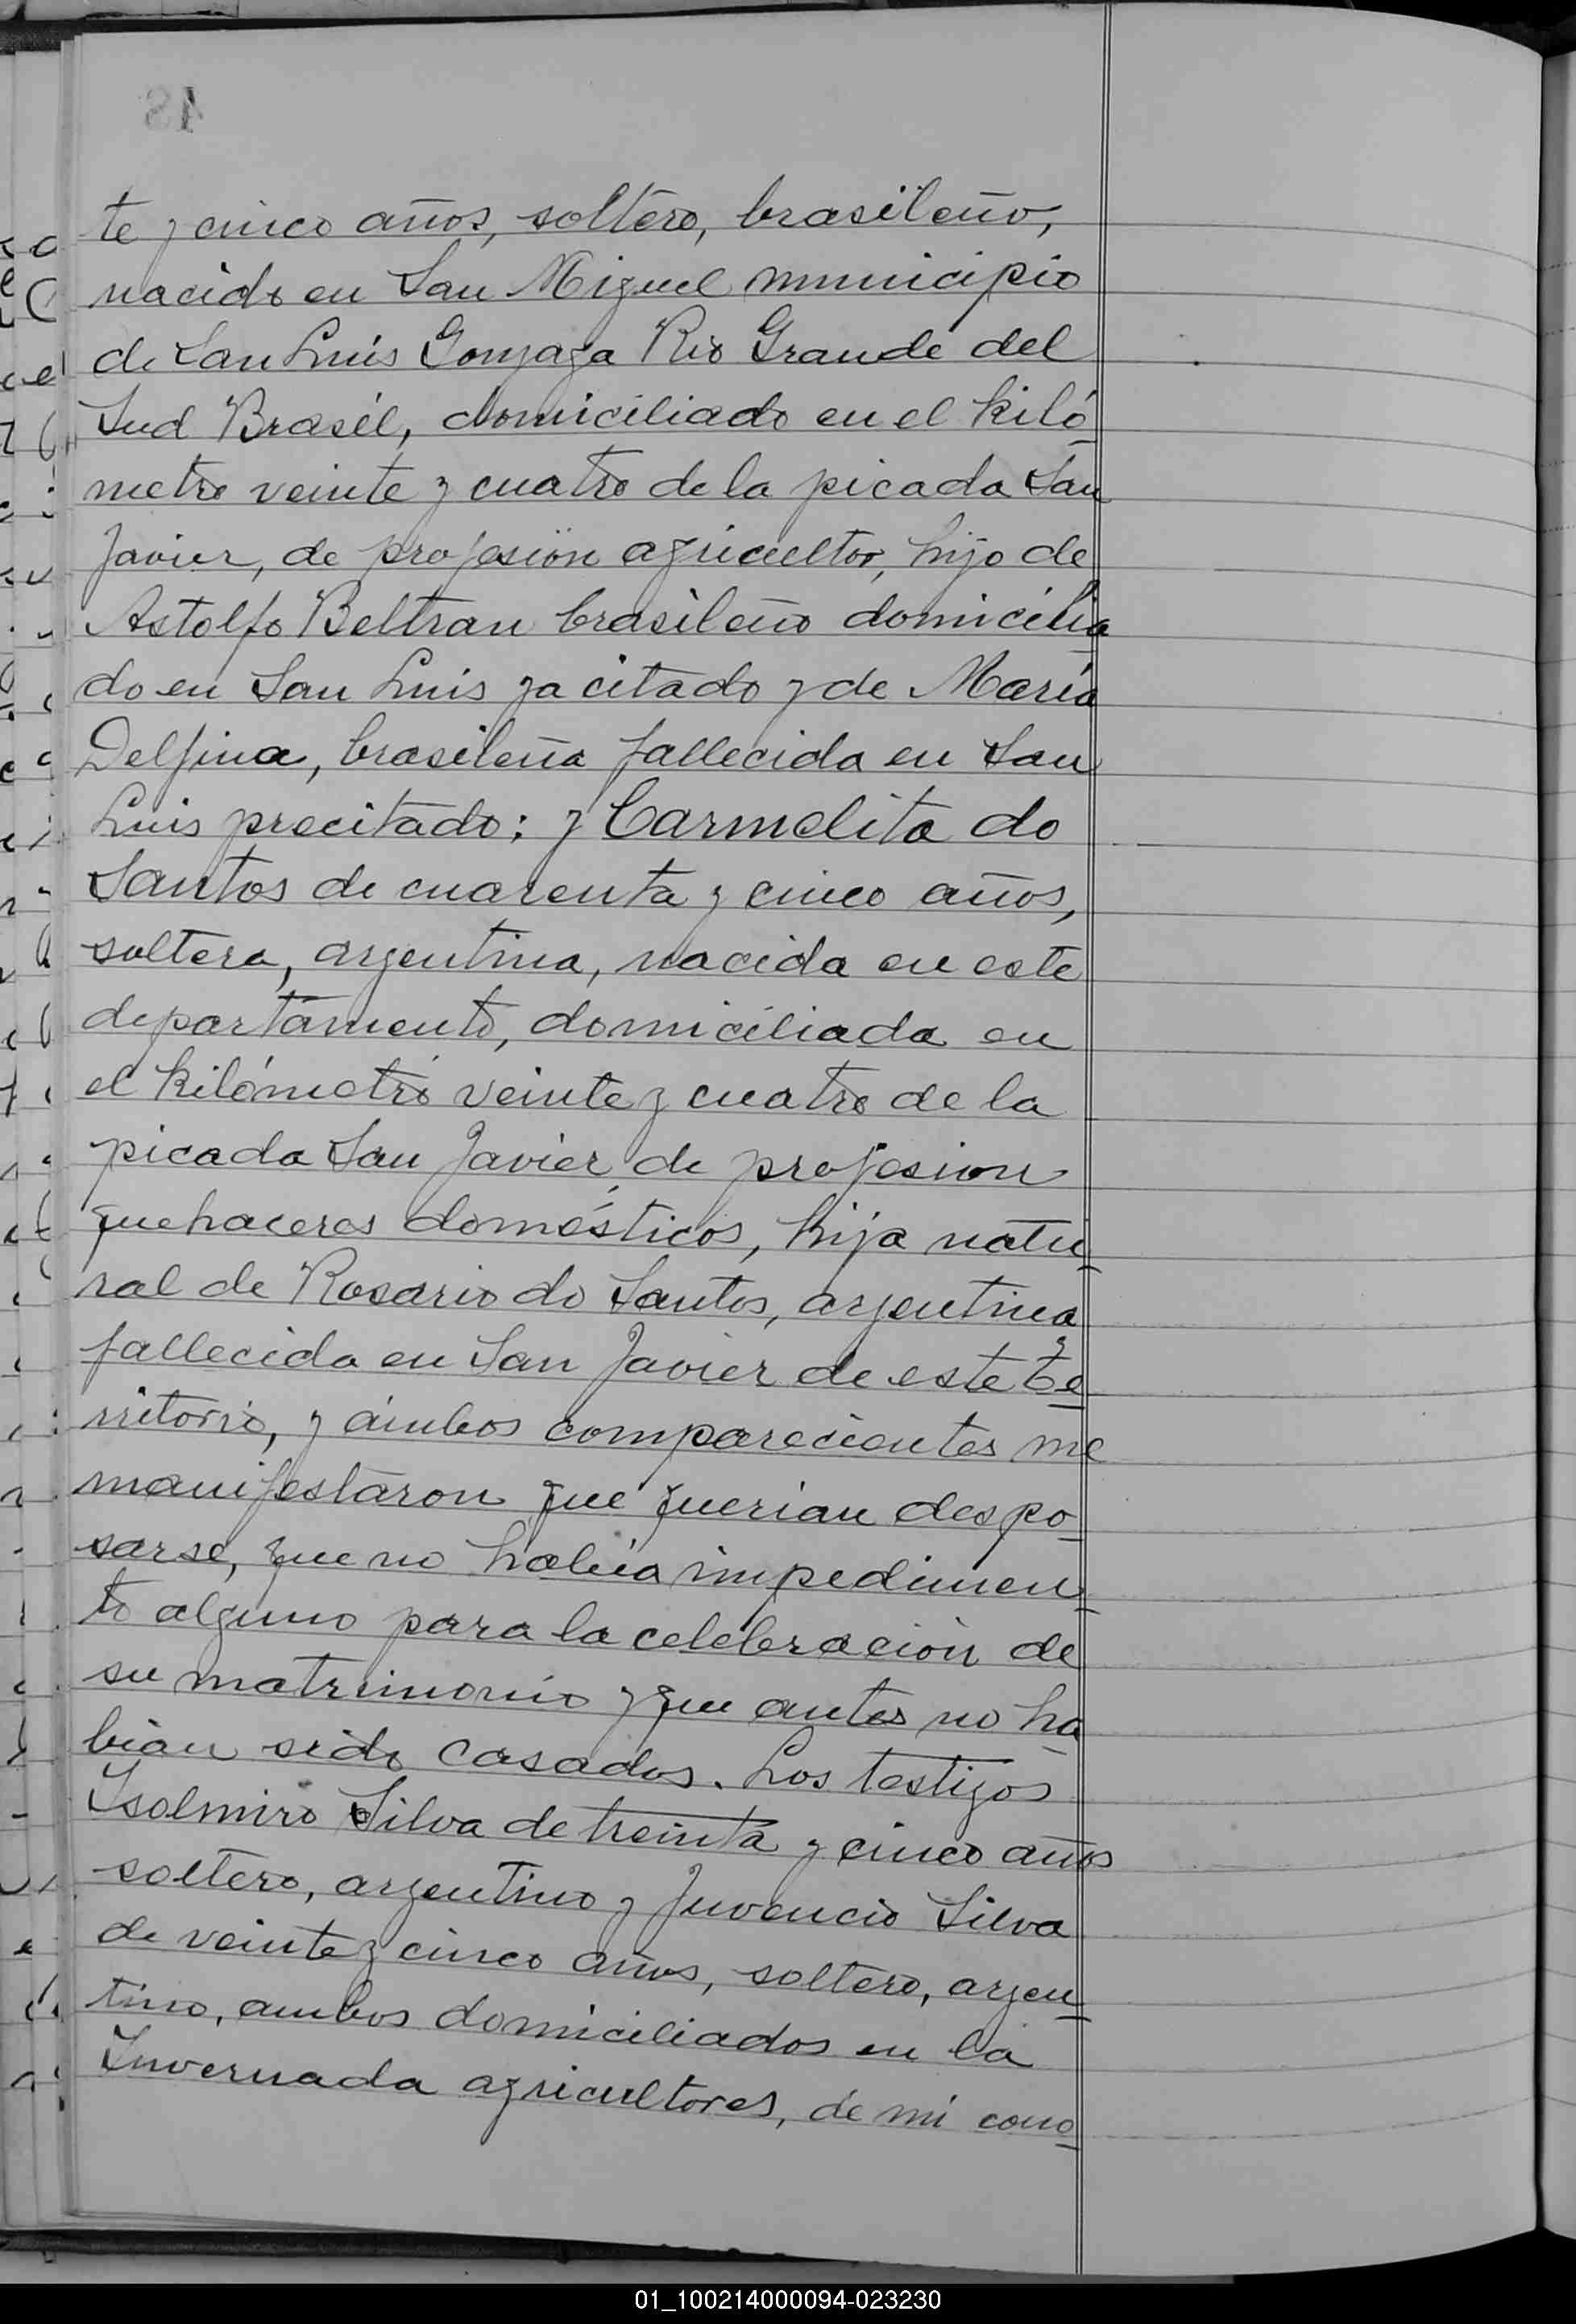 48
te y cinco años, soltero, brasileño,
nacido en San Miguel municipio
de San Luis Gonzaga Rio Grande del
Sud Brasil, domiciliado en el kiló
metro veinte y cuatro de la picada San
Javier, de profesión agricultor, hijo de
Astolfo Beltran brasileño domicilia
do en San Luis ya citado y de María
Delfina, brasileña fallecida en San
Luis precitado; y Carmelita do
Santos de cuarenta y cinco años,
soltera, argentina, nacida en este
departamento, domiciliada en
el kilómetro veinte y cuatro de la
picada San Javier, de profesion
quehaceres domésticos, hija natu
ral de Rosario do Santos, argentina
fallecida en San Javier de este Te
rritorio, y ámbos comparecientes me
manifestaron que querian despo
sarse, que no habia impedimen
to alguno para la celebración de
su matrimonio y que antes no ha
bian sido casados. Los testigos
Isolmiro Silva de treinta y cinco años
soltero, argentino y Juvencio Silva
de veinte y cinco años, soltero, argen
tino, ambos domiciliados en la
Invernada agricultores, de mi cono
01_100214000094-023230